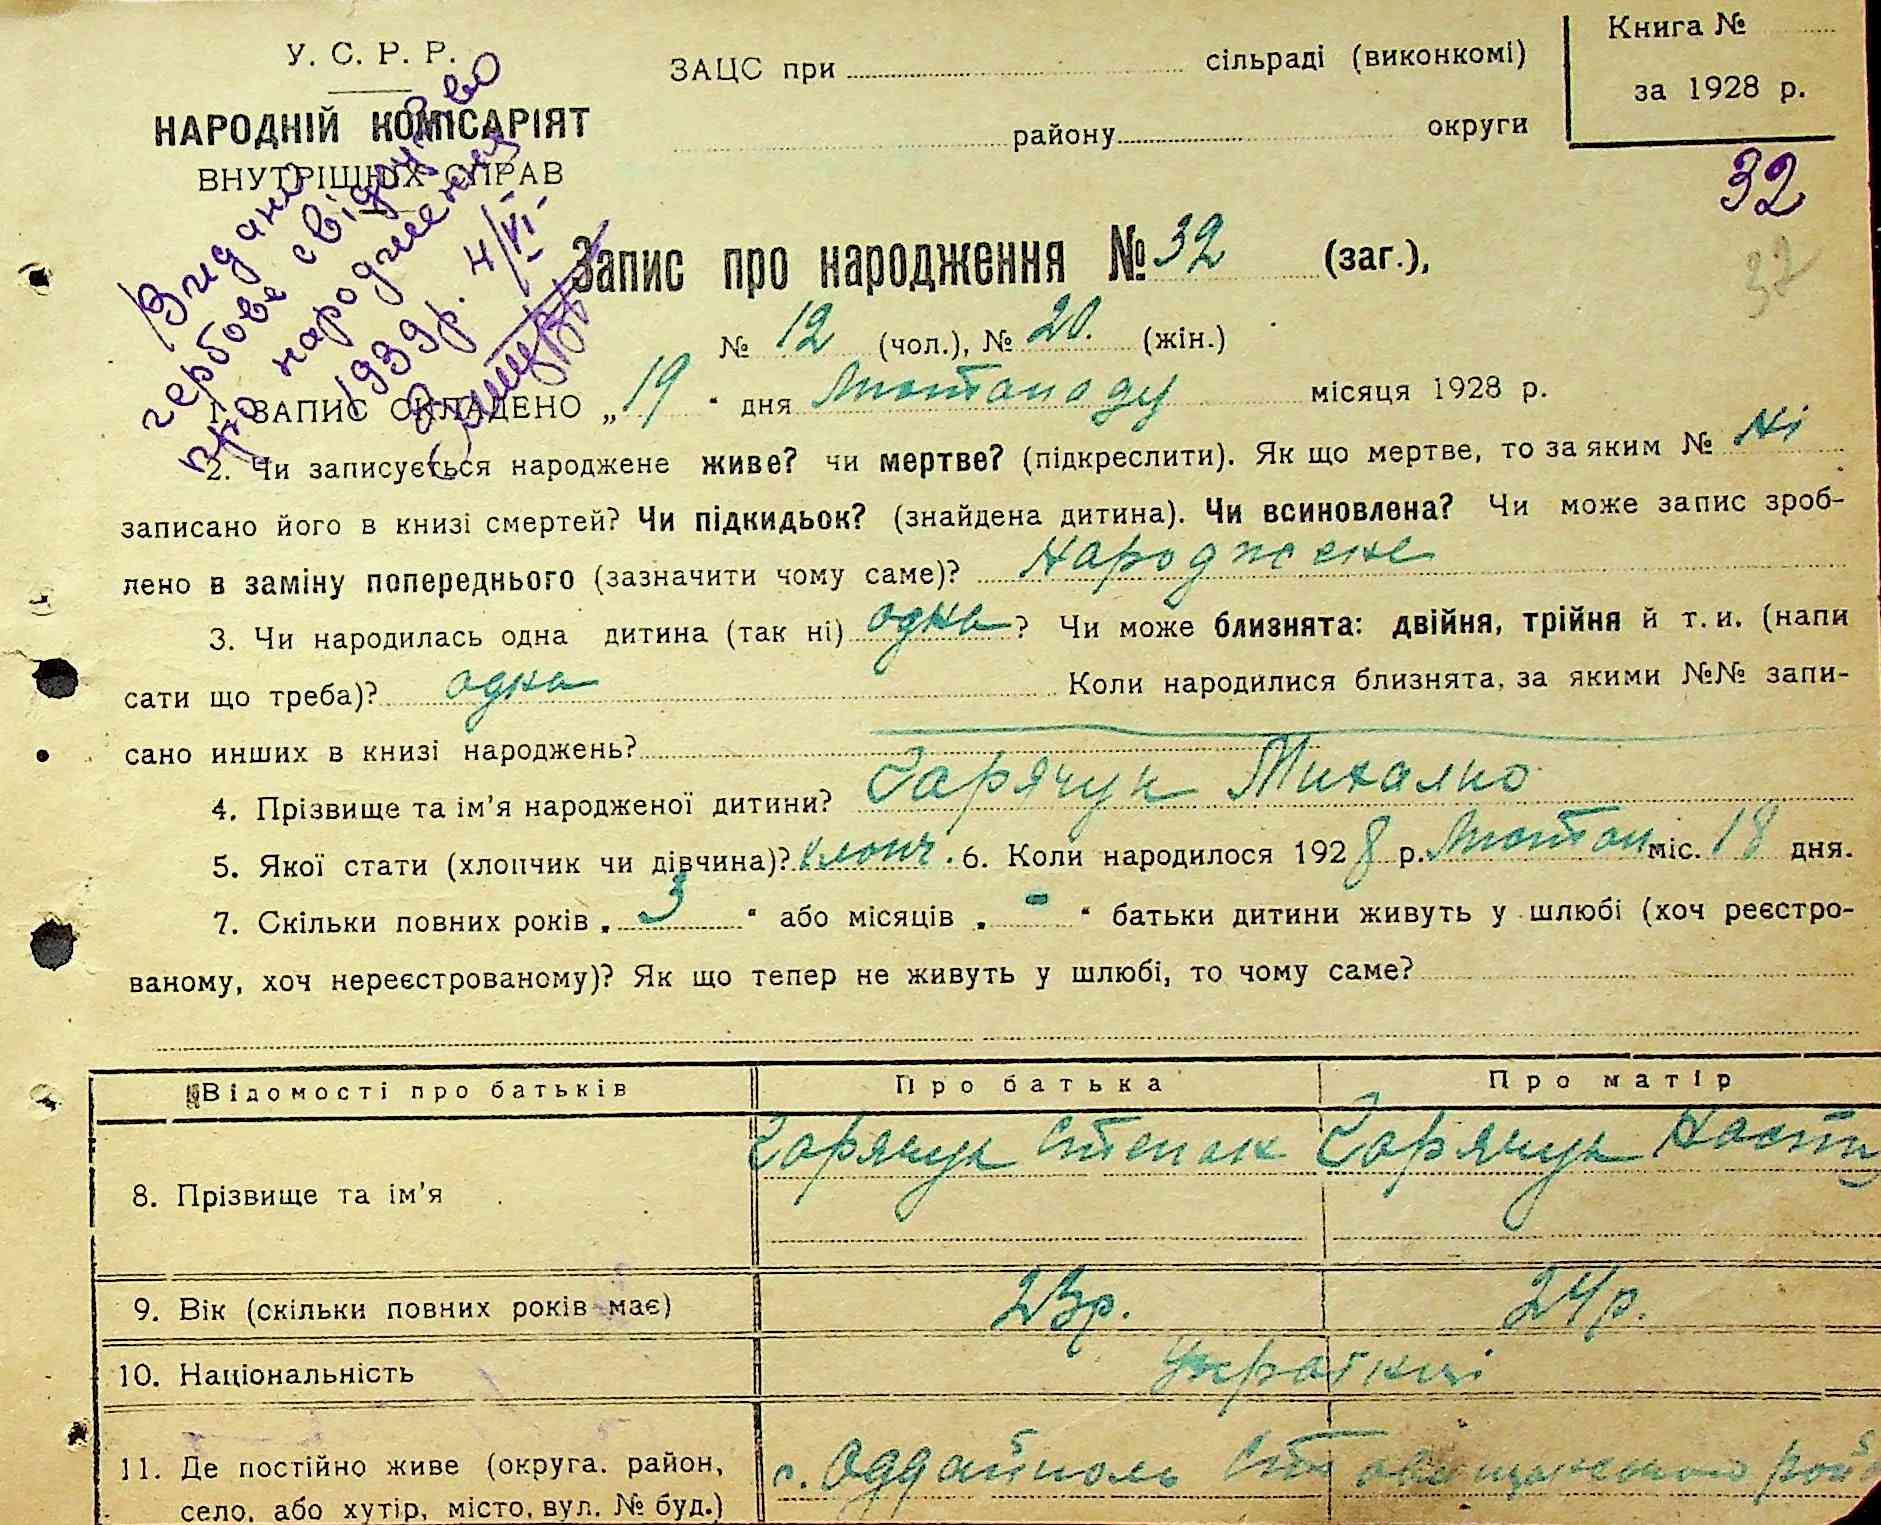 У. С. Р. Р.
НАРОДНІЙ КОМІСАРІЯТ
ВНУТРІШНІХ СПРАВ
ЗАЦС при сільраді (виконкомі)
району округи
Книга №
за 1928 р.
32
32
Видано
гербове свідоцтво
про народження
1939р. 4/VI
Запис про народження № 32 (заг.),
№ 12 (чол.), № 20. (жін.)
1. ЗАПИС СКЛАДЕНО „19“ дня Листопаду місяця 1928 р.
2. Чи записується народжене живе? чи мертве? (підкреслити). Як що мертве, то за яким № Ні
записано його в книзі смертей? Чи підкидьок? (знайдена дитина). Чи всиновлена? Чи може запис зроб-
лено в заміну попереднього (зазначити чому саме)? Народжене
3. Чи народилась одна дитина (так ні) одна? Чи може близнята: двійня, трійня й т. и. (напи
сати що треба)? одна Коли народилися близнята, за якими №№ запи-
сано инших в книзі народжень?
4. Прізвище та ім'я народженої дитини? Гарячук Михалко
5. Якої стати (хлопчик чи дівчина)? хлопч. 6. Коли народилося 1928 р. Листоп міс. 18 дня.
7. Скільки повних років „3“ або місяців „-“ батьки дитини живуть у шлюбі (хоч реєстро-
ваному, хоч нереєстрованому)? Як що тепер не живуть у шлюбі, то чому саме?
Відомості про батьків Про батька Про матір
8. Прізвище та ім'я Гарячук Степан Гарячук Насти
9. Вік (скільки повних років має) 23р. 24р.
10. Національність Українці
11. Де постійно живе (округа. район, с. Оддайполь Ставищанського рай
село, або хутір, місто, вул. № буд.)